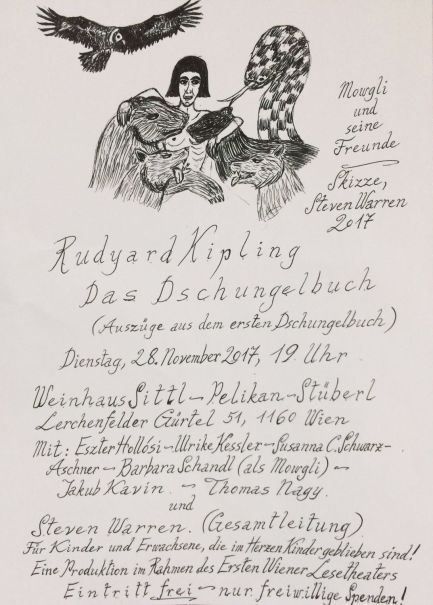 Mowgli
und
seine
Freunde
Skizze,
Steven Warren
2017
Rudyard Kipling
Das Dschungelbuch
(Auszüge aus dem ersten Dschungelbuch)
Dienstag, 28. November 2017, 19. Uhr
Weinhaus Sittl – Pelikan – Stüberl
Lerchenfelder Gürtel 51, 1160 Wien
Mit: Eszter Hollósi – Ulrike Kessler – Susanna C. Schwarz-
Aschner – Barbara Schandl (als Mowgli) –
Jakub Kavin. – Thomas Nagy.
und
Steven Warren. (Gesamtleitung)
Für Kinder und Erwachsene, die im Herzen Kinder geblieben sind!
Eine Produktion im Rahmen des Ersten Wiener Lesetheaters
Eintritt frei – nur freiwillige Spenden!